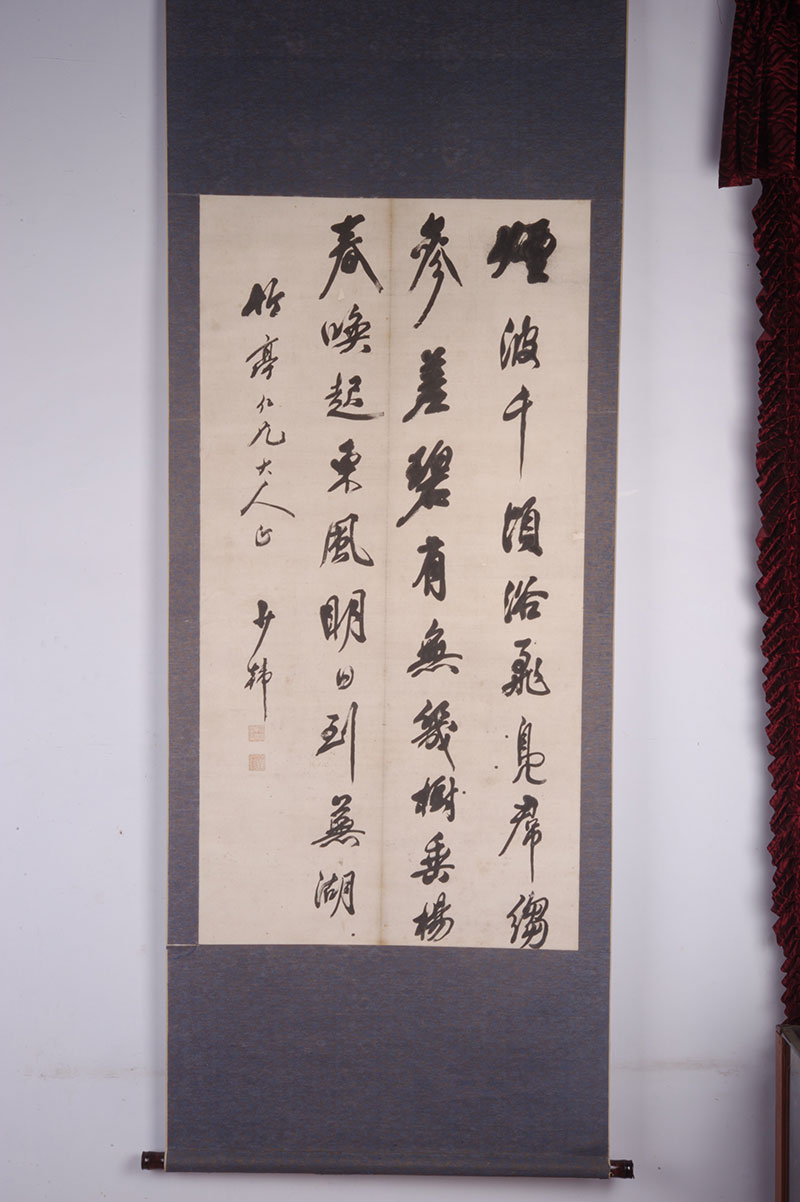 煙波千頃浴飛鳧帬縐
參差碧有無幾樹垂楊
春喚起東風明日到蕪湖
竹亭仁兄大人正 少